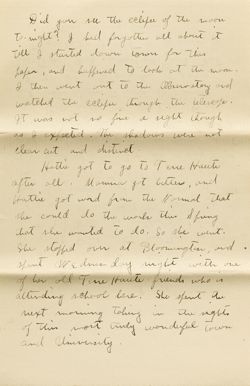 Did you see the eclipse of the moon
to-night? I had forgotten all about it
till I started down town for this
paper, and happened to look at the moon.
I then went out to the Observatory and
watched the eclipse through the telescope.
It was not so fine a sight though
as I expected. The shadows were not
clear cut and distinct.
Hattie got to go to Terre Haute
after all. Mamma got better, and
Hattie got word from the Normal that
she could do the works this Spring
that she wanted to do. So she went.
She stopped over at Bloomington, and
spent Wednesday night with one
of her old Terre Haute friends who is
attending school here. She spent the
next morning taking in the sights
of this most truly wonderful town
and University.